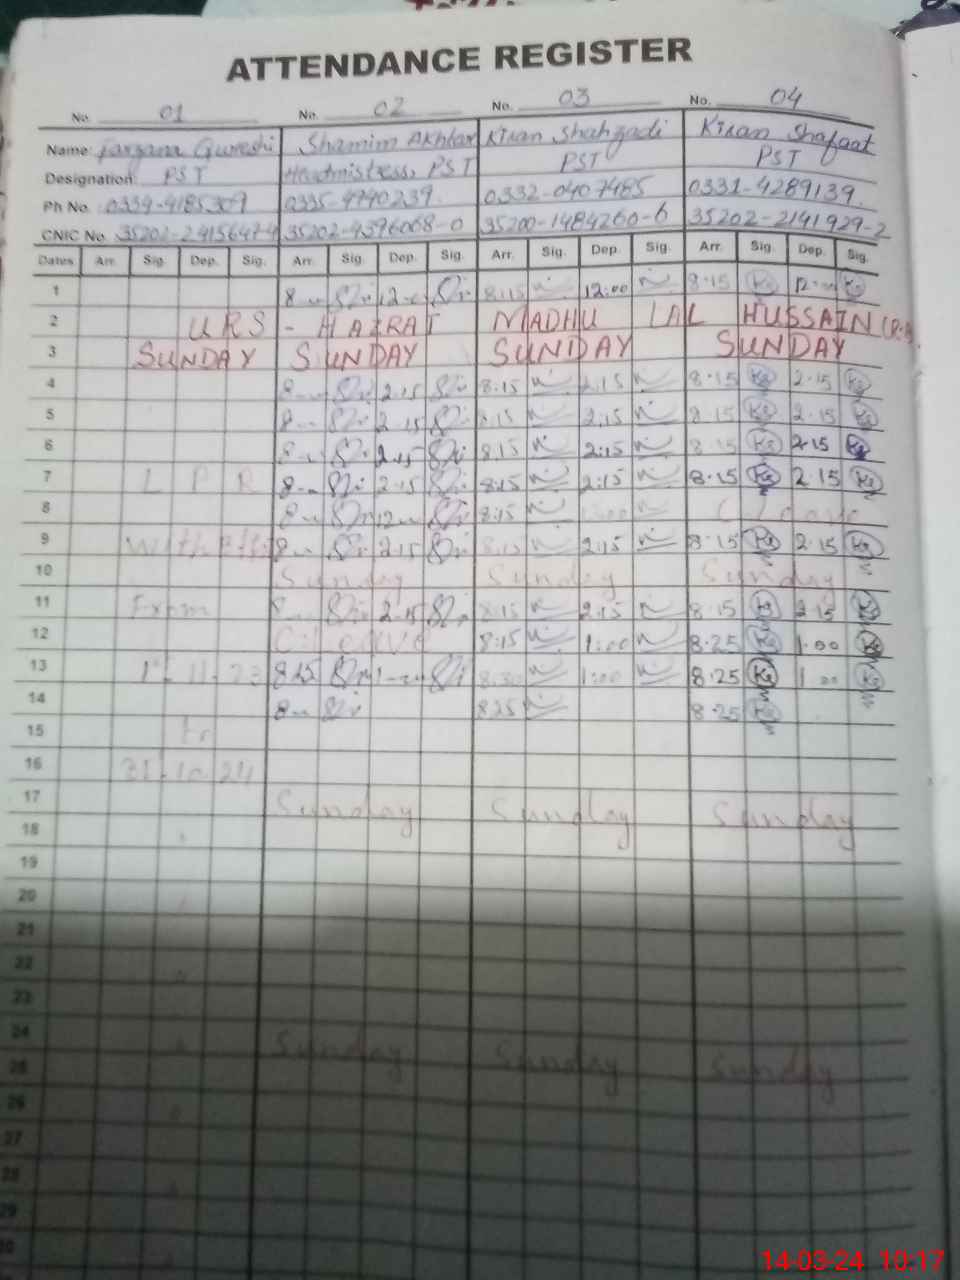 ATTENDANCE REGISTER
No. 01 No. 02 No. 03 No. 04
Name: Farzana Qureshi Shamim Akhtar Kiran Shahzadi Kiran Shafaat
Designation PST Headmistress, PST PST PST
Ph No. 0334-4185309 0335-4740239. 0332-0407485 0331-4289139.
CNIC No. 35202-2415647-4 35202-4396068-0 35200-1484260-6 35202-2141929-2
Dates Arr. Sig. Dep. Sig. Arr. Sig. Dep. Sig. Arr. Sig. Dep. Sig. Arr. Sig. Dep. Sig.
1 8 12 8.15 12:00 8.15 Ks 12 Ks
2 URS - HAZRAT MADHU LAL HUSSAIN
3 SUNDAY SUNDAY SUNDAY SUNDAY
4 8 2.15 8.15 2.15 8.15 Ks 2.15 Ks
5 8 2.15 8.15 2.15 8.15 Ks 2.15 Ks
6 8 2.15 8.15 2:15 8.15 Ks 2.15 Ks
7 L P R 8 2.15 8:15 2:15 8.15 Ks 2.15 Ks
8 8 12 8:15 C/leave
9 with 8 2.15 8.15 2:15 8.15 Ks 2.15 Ks
10 Sunday Sunday Sunday
11 From 8 2.15 8.15 2:15 8.15 Ks 2.15 Ks
12 C/leave 8:15 1:00 8.25 Ks 1.00 Ks
13 1-11-23 8.15 1 8:30 1:00 8.25 Ks 1.00 Ks
14 8 8.25 8.25 Ks
15 to
16 31-10-24
17 Sunday Sunday Sunday
18
19
20
21
22
23
24 Sunday Sunday Sunday
25
26
27
28
29
30
14-03-24 10:17